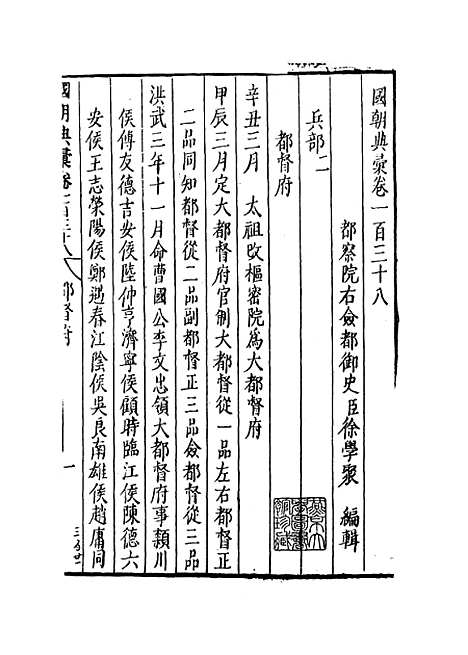 國朝典彙卷一百三十八
都察院右僉都御史臣徐學聚 編輯
兵部二
都督府
辛丑三月 太祖改樞密院爲大都督府
甲辰三月定大都督府官制大都督從一品左右都督正
二品同知都督從二品副都督正三品僉都督從三品
洪武三年十一月命曹國公李文忠領大都督府事潁川
侯傅友德吉安侯陸仲亨濟寧侯顧時臨江侯陳德六
安侯王志榮陽侯鄭遇春江陰侯吳良南雄侯趙庸同
國朝典彙卷一百三十八 都督府 一